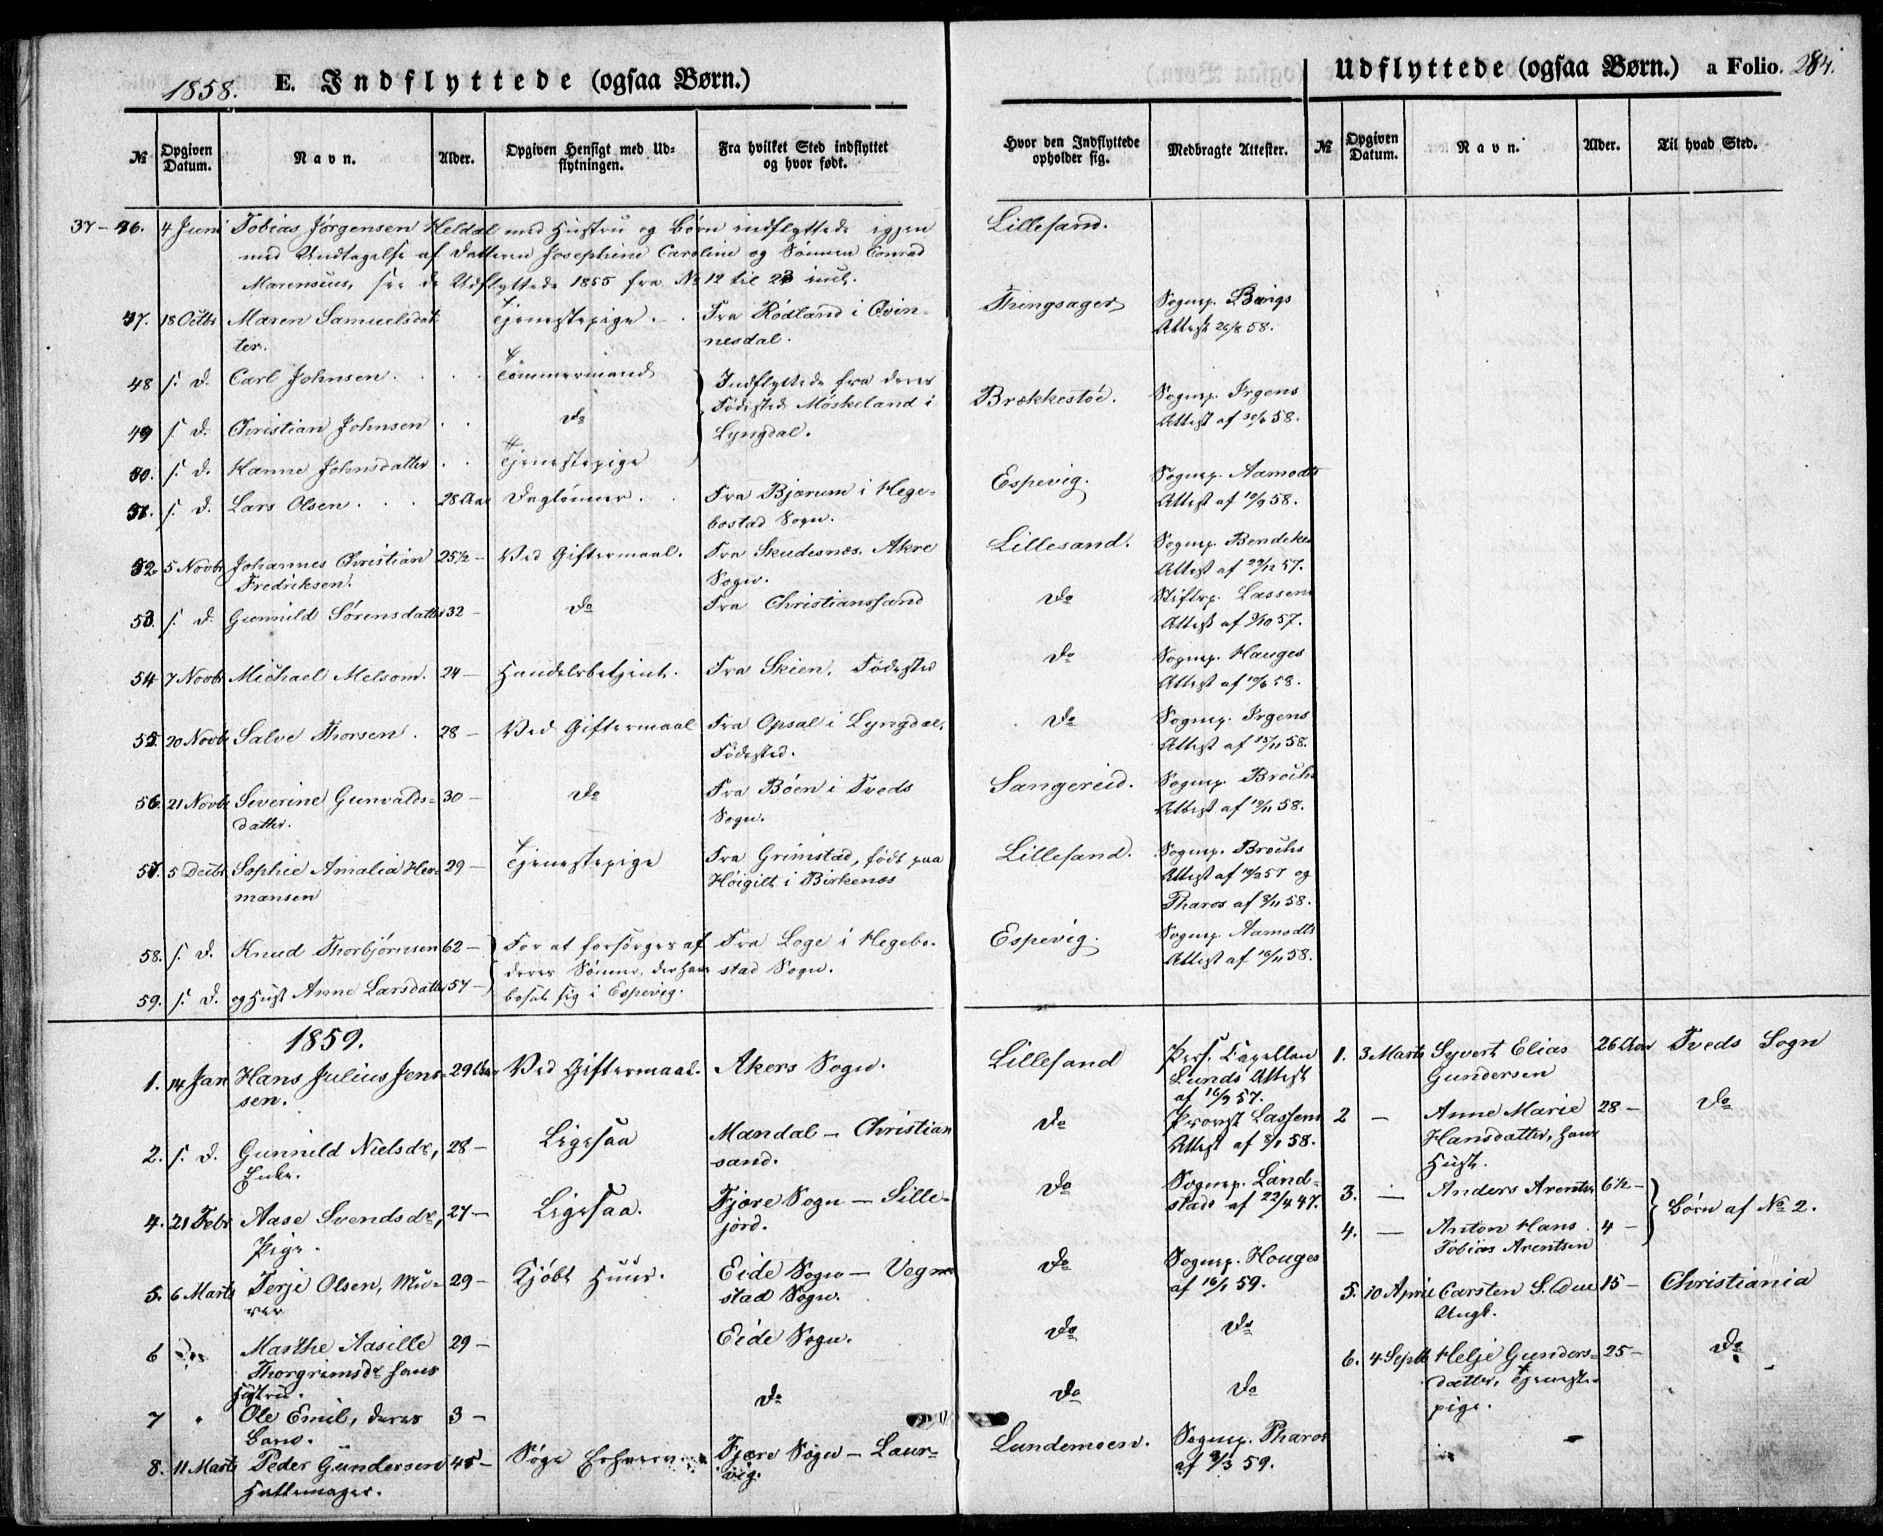 1858. E. Indflyttede (ogsaa Børn.)
№
Opgiven Datum.
Navn.
Alder.
Opgiven Hensigt med Ud-
flytningen.
Fra hvilket Sted indflyttet
og hvor født.
Hvor den Indflyttede
opholder sig.
Medbragte Attester.
37-46. 4 Juni Tobias Jørgensen Heldal med Hustru og Børn indflyttede igjen Lillesand.
med Undtagelse af Datteren Josephine Caroline og Sønnen Conrad
Marensius, see de Udflyttede 1855 fra No 12 til 23 incl.
47. 18 Octbr Maren Samuelsdat- Tjenestepige. Fra Rödland i Qvin- Thingsager Sognep. Bugs
ter. nesdal. Attest 26/8 58.
48 s. D. Carl Johnsen. Tømmermand Indflyttede fra deres
Fødested Møskeland i Brækkestöe. Sognep. Irgens
49 s. D. Christian Johnsen Do Lyngdal. Attest af 58.
50. s. D. Hanne Johnsdatter Tjenestepige
51. s. D. Lars Olsen 28 Aar Daglönner. Fra Bjærum i Hege- Espevig. Sognep. Aamodts
bostad Sogn. Attest af 10/9 58.
52. 5 Novbr Johannes Christian 25½ - Ved Giftermaal. Fra Skudesnæs. Akre Lillesand. Sognep. Bendekes
Fredriksen. Sogn. Attest af 29/12 57.
53. s. D. Gunnild Sörensdatter 32 - Do Fra Christianssand Do Stiftsp. Lassens
Attest af 9/10 57.
54 7 Novbr Michael Melsom. 24 - Handelsbetjent. Fra Skien, Fødested Do Sognep. Hauges
Attest af 10/6 58.
55. 20 Novbr Salve Thorsen. 28 - Ved Giftermaal Fra Opsal i Lyngdal, Do Sognep. Irgens
Födested. Attest af 15/11 58.
56. 21 Novbr Severine Gunvalds- 30 - Do Fra Böen i Tveds Sangereid. Sognep. Brochs
datter. Sogn. Attest af 19/11 58.
57. 5 Decbr Sophie Amalia Her- 29 - Tjenestepige Fra Grimstad, født paa Lillesand. Sognep. Brochs
mansen Höigilt i Birkenæs Attest af 10/2 57 og
Pharos af 8/11 58.
58. s. D. Knud Thorbjörnsen 62 - For at forsörges af Fra Loge i Hegebo- Espevig. Sognep. Aamodts
deres Sönner, der have stad Sogn. Attest af 16/11 58.
59. s. D. og Hust Anne Larsdatter 57 - bosat sig i Espevig.
1859.
1. 14 Jan Hans Julius Jens- 29 Aar Ved Giftermaal. Akers Sogn. Lillesand Pers. Capellan
sen. Lunds Attest
af 16/9 57.
2. s. D. Gunnild Nielsdr, 28 - Ligesaa Mandal - Christian Do Provst Lassens
Enke. sand. Attest af 8/1 58.
4. 21 Febr Aase Svendsdr, 27 - Ligesaa. Fjære Sogn - Sille- Do Sognep. Land-
Pige. jord. stads af 22/4 47.
5. 6 Marts Terje Olsen, Mu- 29 - Kjöbt Huus. Eide Sogn - Do Sognep. Houges
rer stad Sogn. af 16/1 59.
6 Do Marthe Aasille 29 - Eide Sogn. Do Do
Thorgrimsdr hans
Hustru.
7 " Ole Emil, deres 3 - Do Do Do
Barn.
8. 11 Marts Peder Gundersen 45 - Söge Erhverv Fjære Sogn - Laur- Lundemoen. Sognep. Pharos
Hattemager. vig. af 8/3 59.
Udflyttede (ogsaa Børn.) a Folio. 284.
№
Opgiven Datum.
Navn.
Alder.
Til hvad Sted.
1. 3 Marts Syvert Elias 26 Aar Tveds Sogn
Gundersen
2 - Anne Marie 28 - Do
Hansdatter, hans
Hust.
3. - Anders Arents. 6½ - Börn af No 2.
4. - Anton Hans 4 -
Tobias Arentsen
5. 10 April Carsten S. Due 15 - Christiania
Ungk.
6. 4 Septbr Helje Gunders- 25 - Do
datter, Tjeneste-
pige.